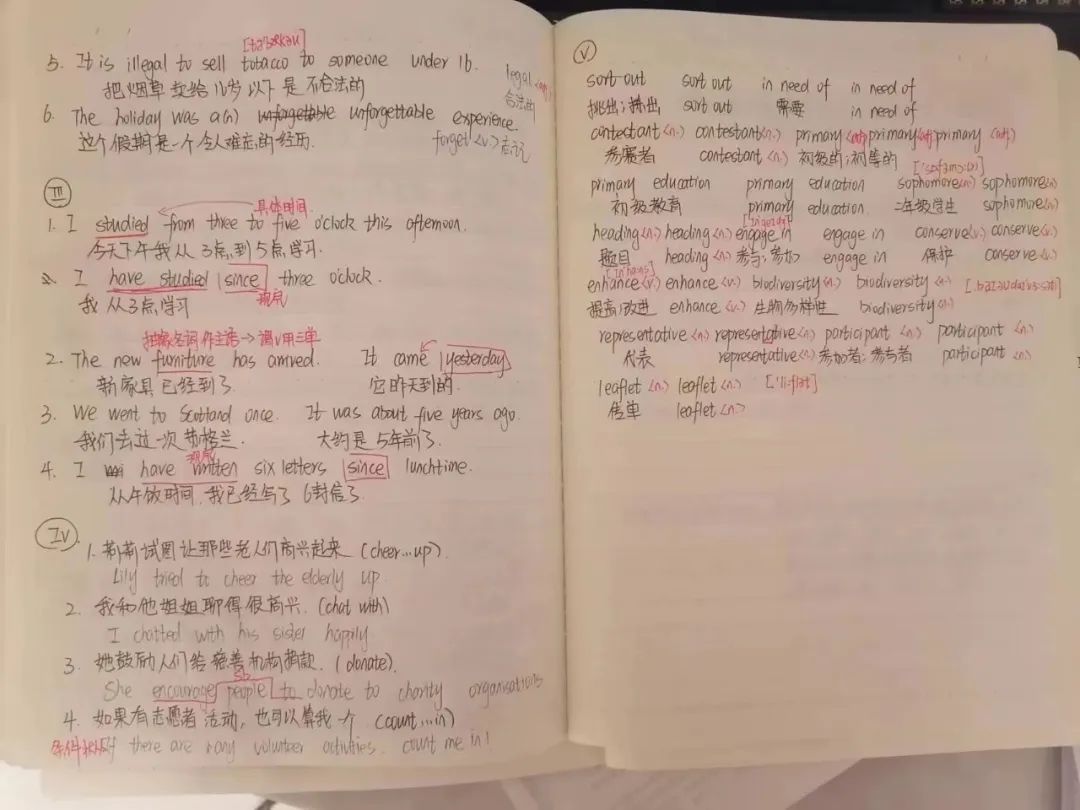 [təˈbækəu]
5. It is illegal to sell tobacco to someone under 16.
legal <adj>
把烟草卖给16岁以下是不合法的
合法的
6. The holiday was a(n) unforgettable unforgettable experience.
这个假期是一个令人难忘的经历.
forget <v.> 忘记
III
具体时间
1. I studied from three to five o'clock this afternoon.
今天下午我从3点到5点学习.
I have studied since three o'clock.
我从3点学习
现完
抽象名词作主语→谓v用三单
2. The new furniture has arrived. It came yesterday
新家具已经到了. 它昨天到的.
3. We went to Scotland once. It was about five years ago.
我们去过一次苏格兰. 大约是5年前了.
现完
4. I have written six letters since lunchtime.
从午饭时间,我已经写了6封信了.
IV.
1. 莉莉试图让那些老人们高兴起来 (cheer...up).
Lily tried to cheer the elderly up.
2. 我和他姐姐聊得很高兴. (chat with)
I chatted with his sister happily.
3. 她鼓励人们给慈善机构捐款. (donate).
sb
She encourage people to donate to charity organisations
4. 如果有志愿者活动,也可以算我一个 (count...in)
If there are any volunteer activities. count me in!
V
sort out sort out in need of in need of
挑出;拣出 sort out 需要 in need of
contestant <n.> contestant <n.> primary <adj> primary <adj> primary <adj>
参赛者 contestant <n.> 初级的;初等的 [ˈsɒfəmɔ:(r)]
primary education primary education sophomore <n.> sophomore <n>
初级教育 primary education. 二年级学生 sophomore <n>
[ɪnˈgeɪdʒ]
heading <n.> heading <n.> engage in engage in conserve <v.> conserve <v.>
题目 heading <n.> 参与;参加 engage in 保护 conserve <v.>
enhance <v.> enhance <v.> biodiversity <n.> biodiversity <n.> [ˌbaɪəudaɪˈvɜ:səti]
提高;改进 enhance <v.> 生物多样性 biodiversity <n.>
representative <n.> representative <n.> participant <n.> participant <n.>
代表 representative <n.> 参加者;参与者 participant <n.>
leaflet <n.> leaflet <n.> [ˈli:flət]
传单 leaflet <n.>